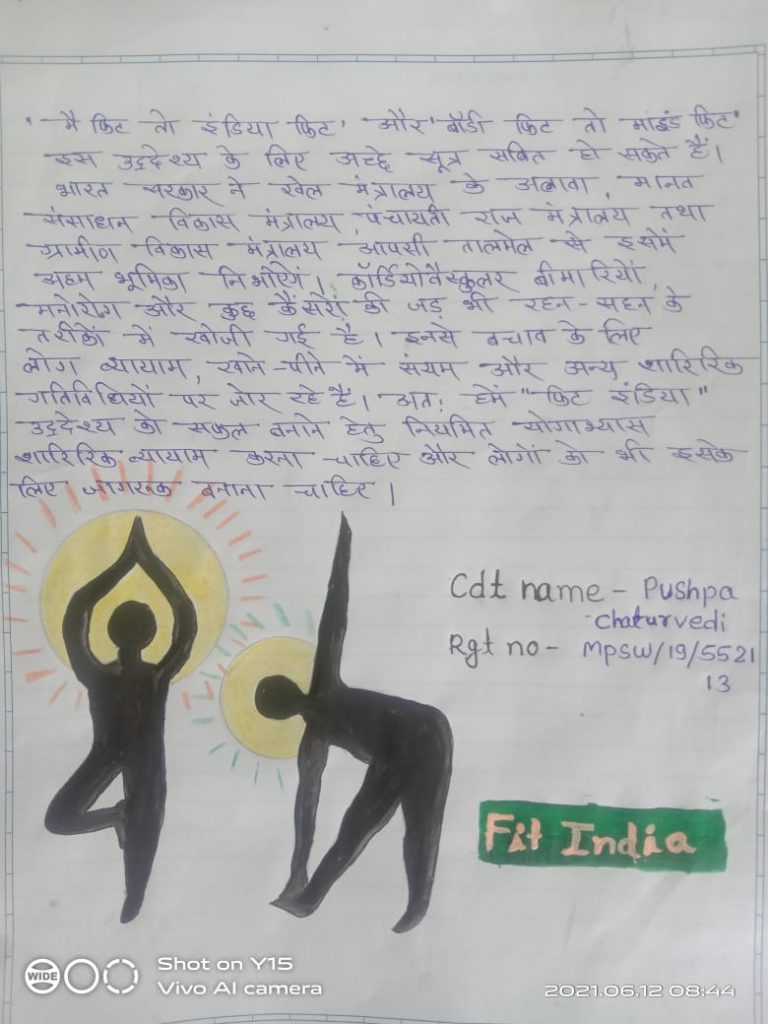 ' मै फिट तो इंडिया फिट' और 'बॉडी फिट तो माइंड फिट'
इस उद्देश्य के लिए अच्छे सूत्र सबित हो सकते हैं।
भारत सरकार ने खेल मंत्रालय के अलावा, मानव
संसाधन विकास मंत्रालय, पंचायती राज मंत्रालय तथा
ग्रामीण विकास मंत्रालय आपसी तालमेल से इसमें
अहम भूमिका निभाऐंगें। कॉर्डियोवैस्कुलर बीमारियों,
मनोरोग और कुछ कैंसरों की जड़ भी रहन-सहन के
तरीकों में खोजी गई है। इनसे बचाव के लिए
लोग व्यायाम, खाने-पीने में संयम और अन्य शारिरिक
गतिविधियों पर जोर रहे है। अतः हमें "फिट इंडिया"
उद्देश्य को सफल बनाने हेतु नियमित योगाभ्यास
शारिरिक व्यायाम करना चाहिए और लोगों को भी इसके
लिए जागरूक बनाना चाहिए।
Cdt name - Pushpa
Chaturvedi
Rgt no - MPSW/19/5521
13
Fit India
WIDE
Shot on Y15
Vivo AI camera
2021.06.12 08:44